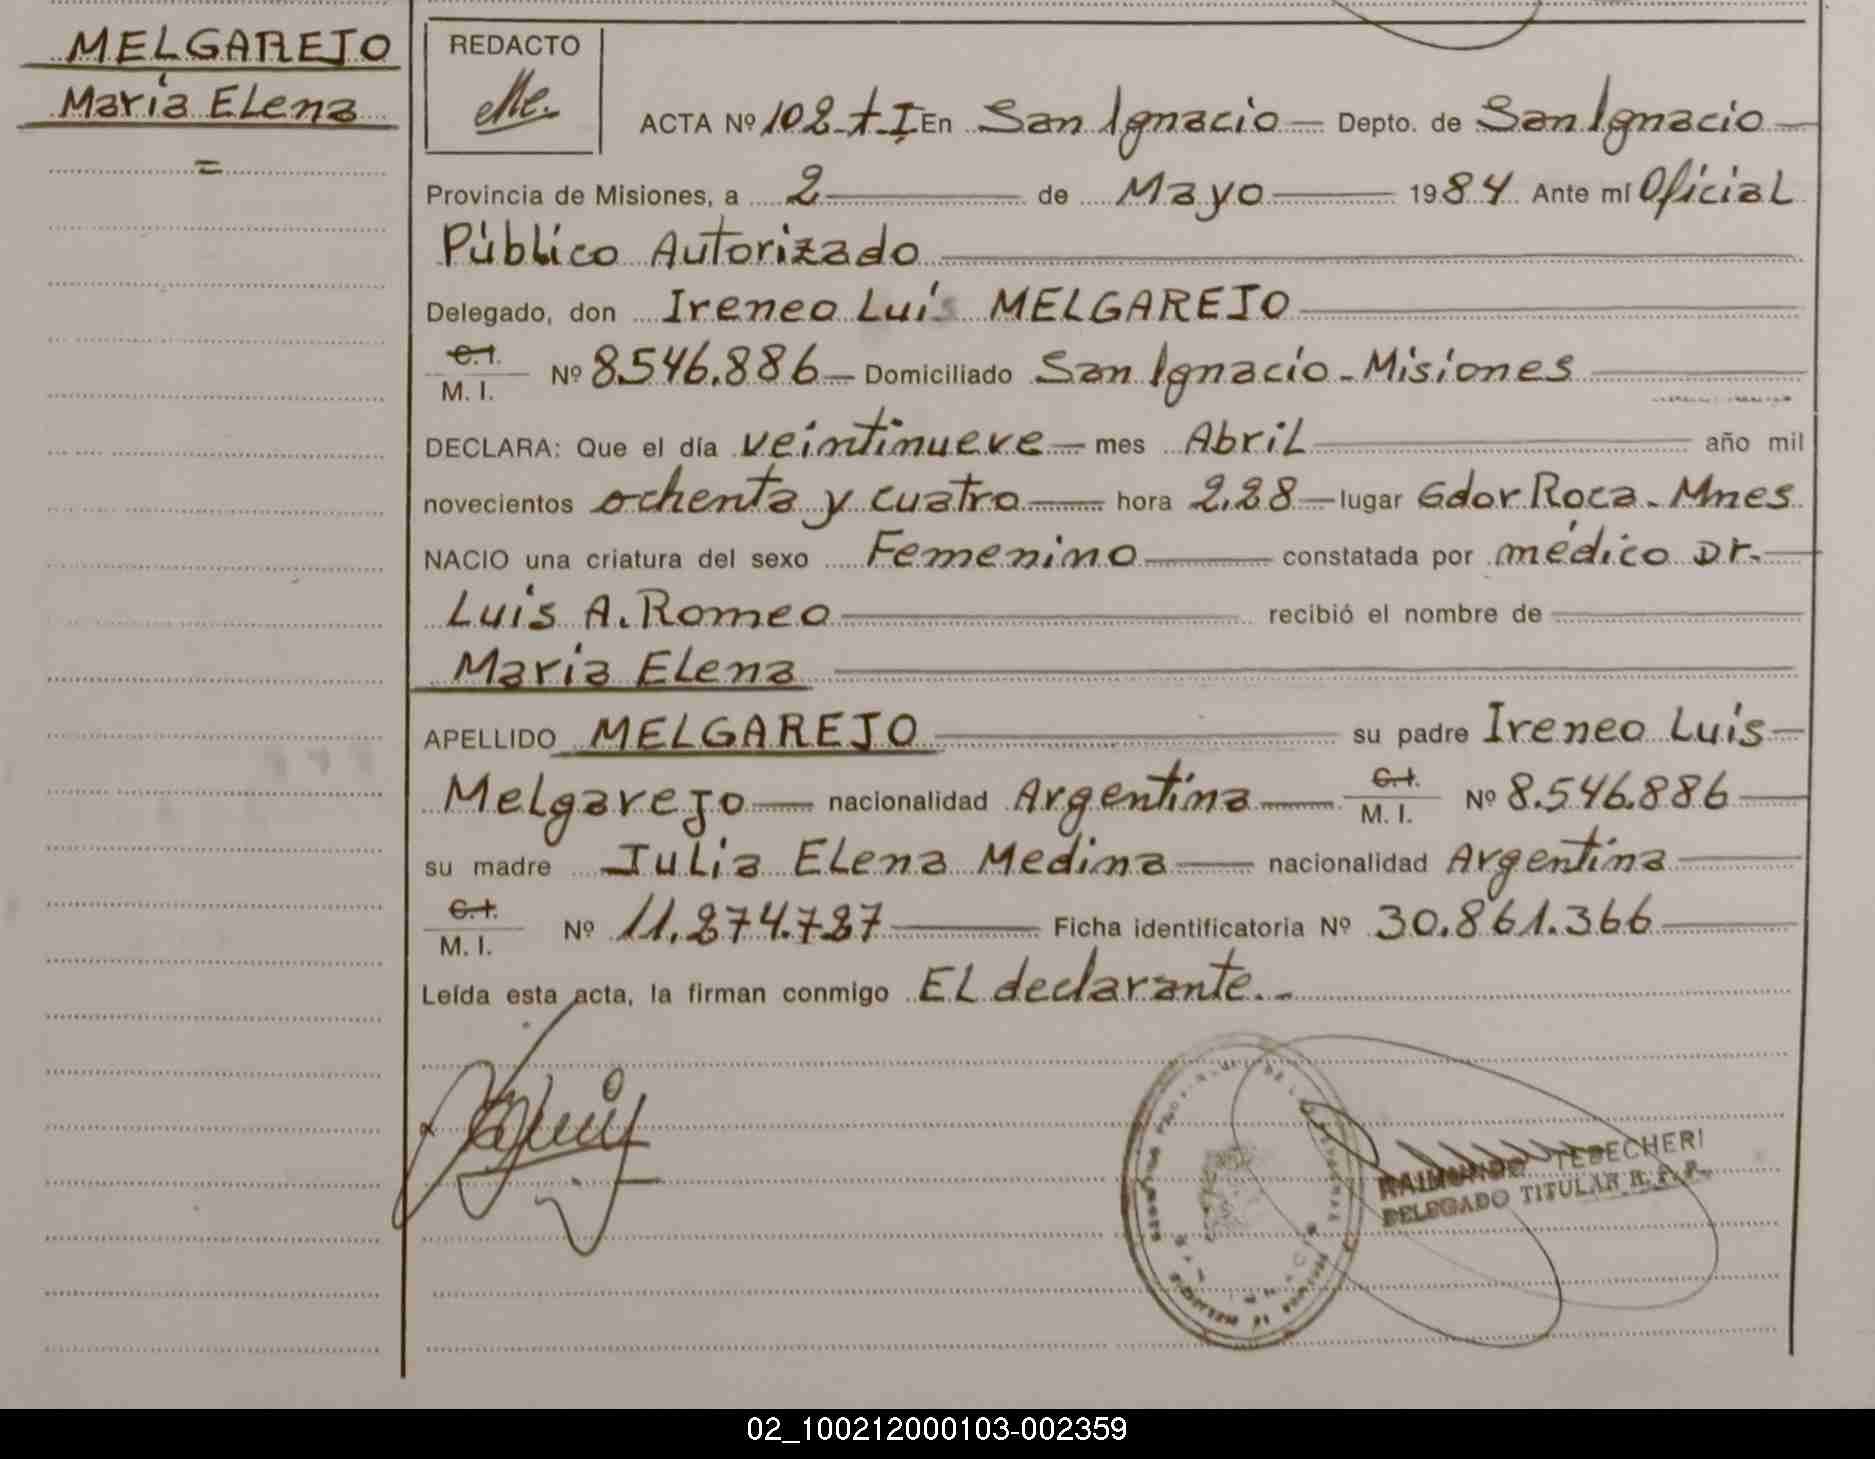 MELGAREJO
María ELena
=
REDACTO
ACTA Nº 102-t-I En San Ignacio — Depto. de San Ignacio —
Provincia de Misiones, a 2 — de Mayo — 1984 Ante mí Oficial
Público Autorizado
Delegado, don Ireneo Luis MELGAREJO
C.I.
M. I. Nº 8.546.886 — Domiciliado San Ignacio - Misiones
DECLARA: Que el día veintinueve — mes Abril — año mil
novecientos ochenta y cuatro — hora 2,28 — lugar Gdor Roca - Mnes
NACIO una criatura del sexo Femenino — constatada por médico Dr. —
Luis A. Romeo — recibió el nombre de —
María ELena
APELLIDO MELGAREJO — su padre Ireneo Luis —
Melgarejo — nacionalidad Argentina — C.I. M. I. Nº 8.546.886 —
su madre Julia ELena Medina — nacionalidad Argentina —
C.I.
M. I. Nº 11.874.787 — Ficha identificatoria Nº 30.861.366 —
Leída esta acta, la firman conmigo EL declarante. -
RAIMUNDO TEBECHERI
DELEGADO TITULAR R. P. P.
02_100212000103-002359